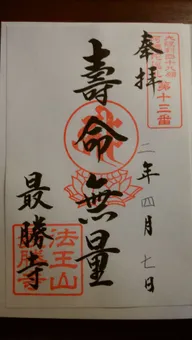 奉拝
第十三番
壽命無量
二年四月七日
最勝寺
法王山
最勝寺